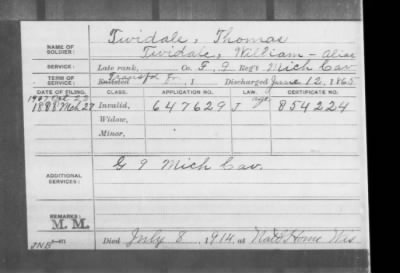 NAME OF SOLDIER: Twidale, Thomas
Twidale, William - Alias
SERVICE: Late rank, Co. F, 9 Reg't Mich Cav
TERM OF SERVICE: Enlisted Transfd fr , 1 Discharged June 12, 1865
DATE OF FILING. CLASS. APPLICATION NO. LAW. CERTIFICATE NO.
1907
1888 Mch 27 Invalid, 647629 J age. 854224
Widow,
Minor,
ADDITIONAL SERVICES: G 9 Mich Cav.
REMARKS:
M. M.
Died July 8, 1914, at Nat'l Home Wis
JNB